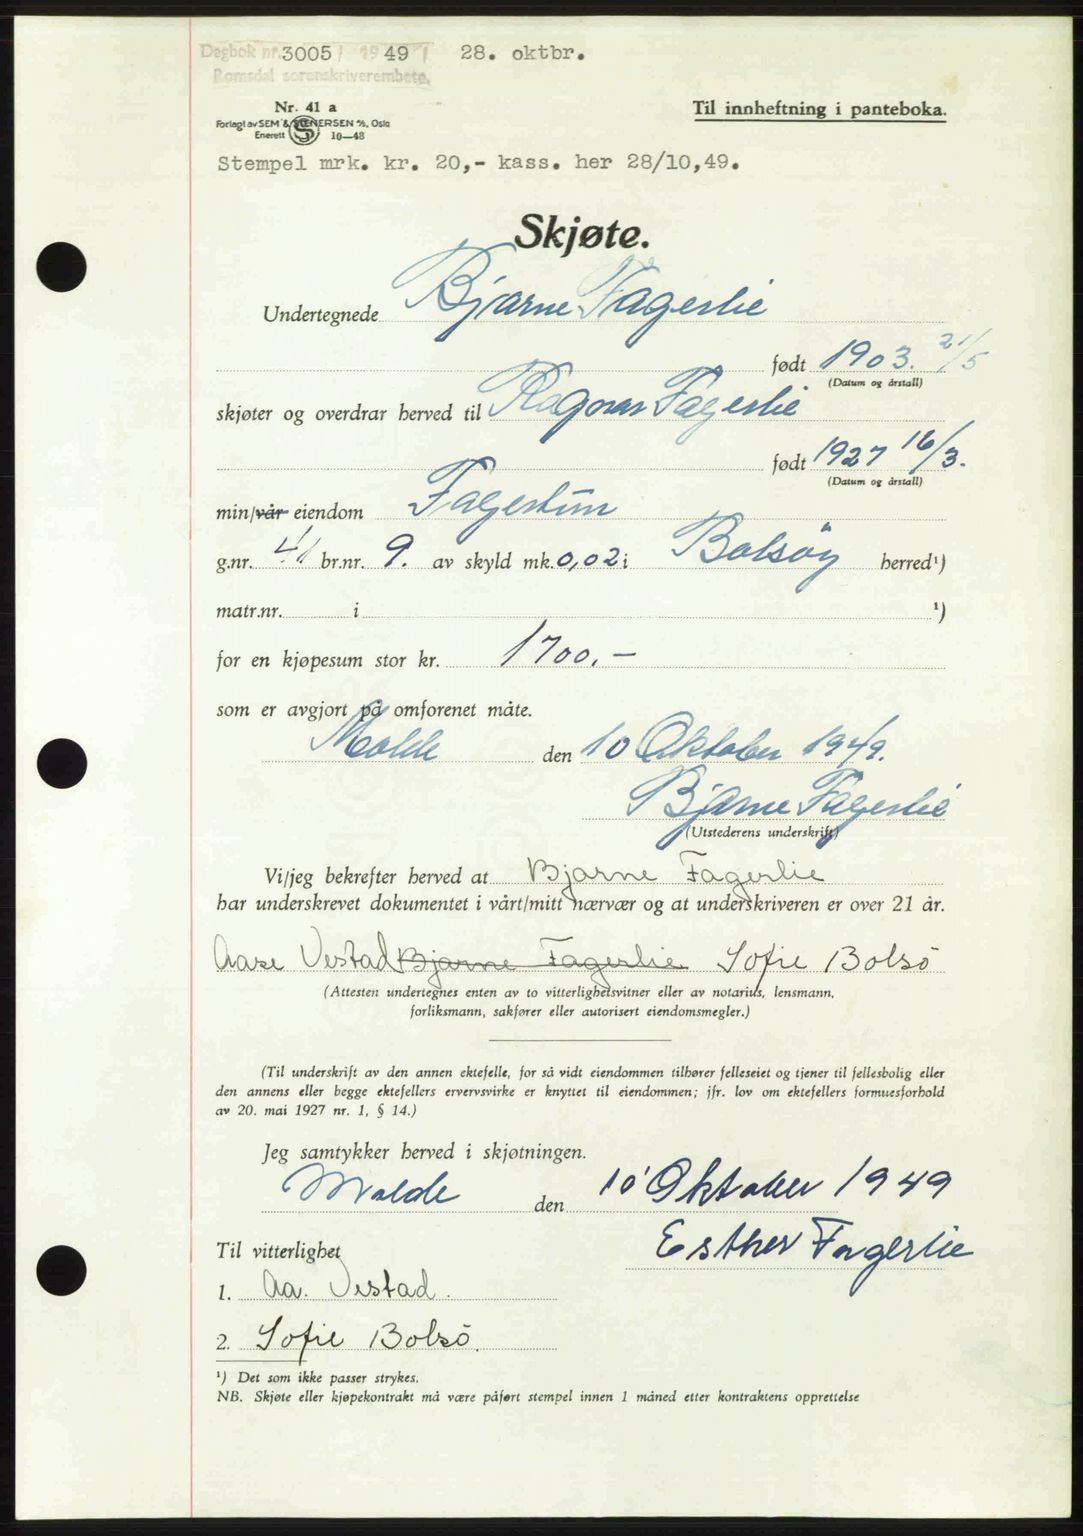 Dagbok nr. 3005 / 1949 28. oktbr.
Romsdal sorenskriverembete.
Nr. 41 a
Til innheftning i panteboka.
Forlagt av SEM & STENERSEN A/S, Oslo
Enerett 10—48
Stempel mrk. kr. 20,- kass. her 28/10,49.
Skjøte.
Undertegnede Bjarne Fagerlie
født 1903. 21/5
(Datum og årstall)
skjøter og overdrar herved til Ragnar Fagerlie
født 1927 16/3.
(Datum og årstall)
min/vår eiendom Fagertun
g.nr. 41 br.nr. 9. av skyld mk. 0,02 i Bolsøy herred¹)
matr.nr. i ¹)
for en kjøpesum stor kr. 1700.—
som er avgjort på omforenet måte.
Molde den 10 Oktober 1949.
Bjarne Fagerlie
(Utstederens underskrift)
Vi/jeg bekrefter herved at Bjarne Fagerlie
har underskrevet dokumentet i vårt/mitt nærvær og at underskriveren er over 21 år.
Aase Vestad Bjarne Fagerlie Sofie Bolsø
(Attesten undertegnes enten av to vitterlighetsvitner eller av notarius, lensmann,
forliksmann, sakfører eller autorisert eiendomsmegler.)
(Til underskrift av den annen ektefelle, for så vidt eiendommen tilhører felleseiet og tjener til fellesbolig eller
den annens eller begge ektefellers ervervsvirke er knyttet til eiendommen; jfr. lov om ektefellers formuesforhold
av 20. mai 1927 nr. 1, § 14.)
Jeg samtykker herved i skjøtningen.
Molde den 10 Oktober 1949
Esther Fagerlie
Til vitterlighet
1. Aa. Vestad.
2. Sofie Bolsø.
¹) Det som ikke passer strykes.
NB. Skjøte eller kjøpekontrakt må være påført stempel innen 1 måned etter kontraktens opprettelse